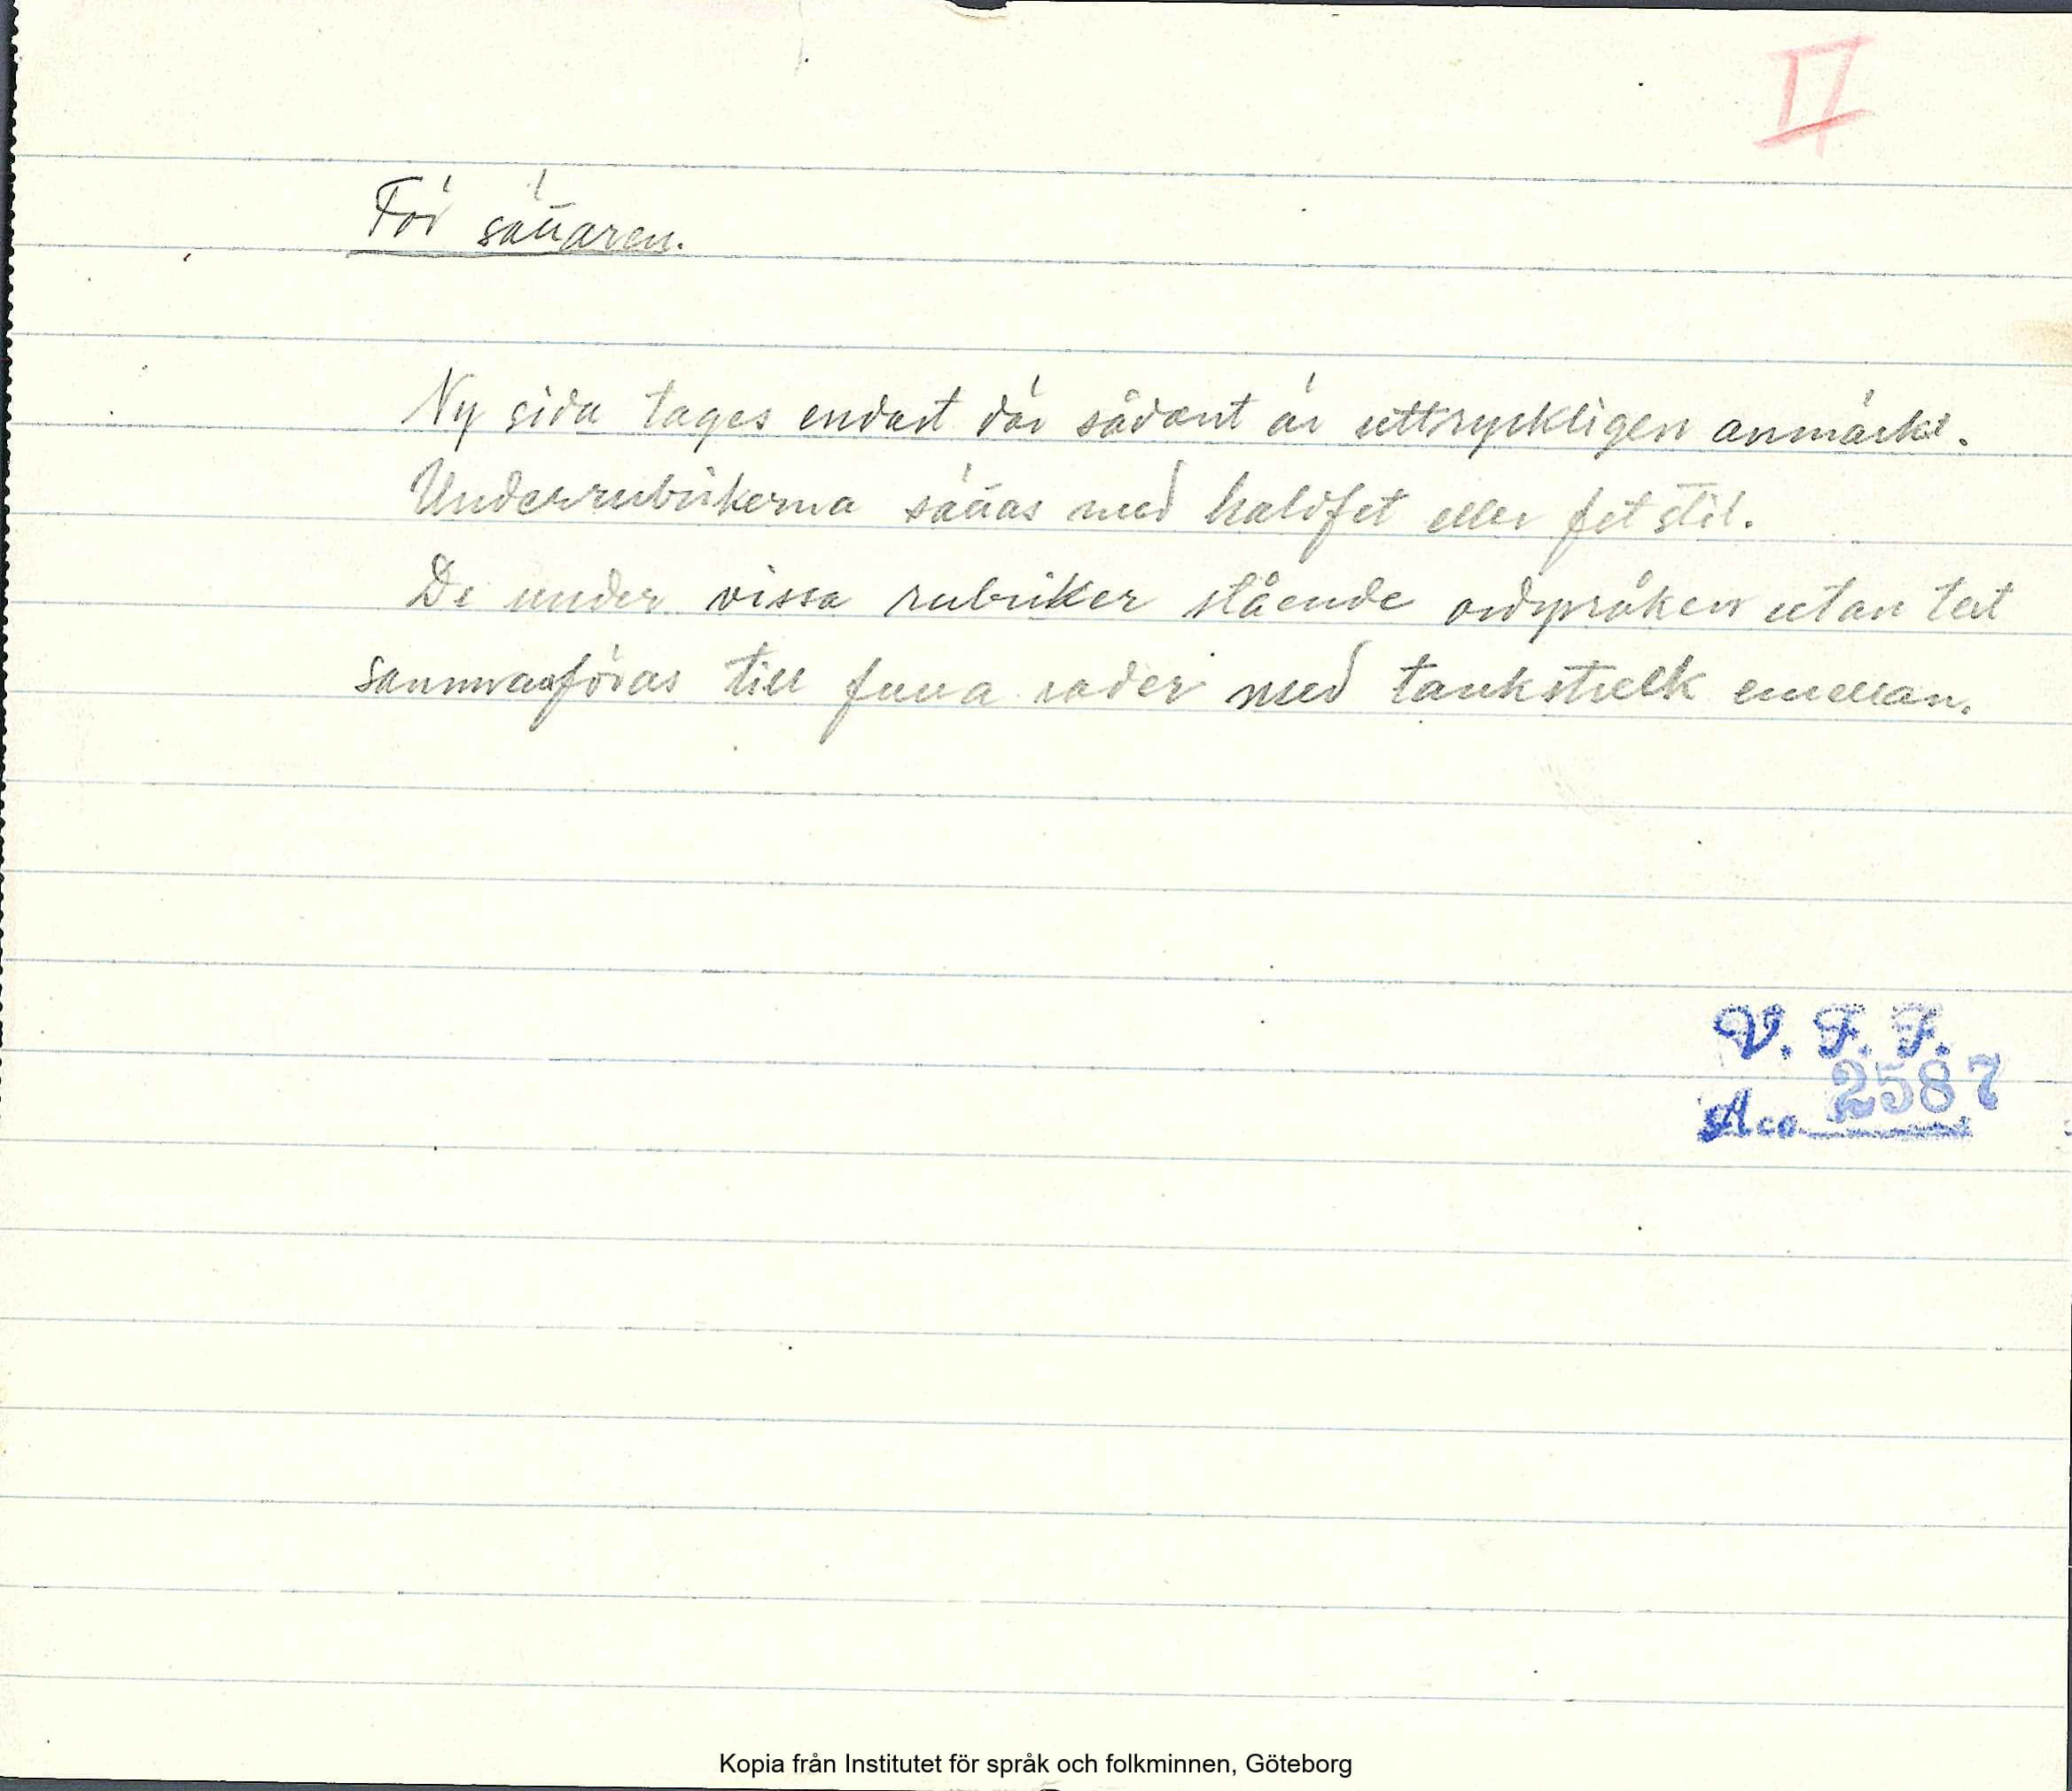 II
För sättaren.
Ny sida tages endast där sådant är uttryckligen anmärkt.
Underrubrikerna sättas med halvfet eller fet stil.
De under vissa rubriker stående ordspråken utan text
sammanföras till fulla rader med tankstreck emellan.
V. F. F.
Acc. 2587
Kopia från Institutet för språk och folkminnen, Göteborg